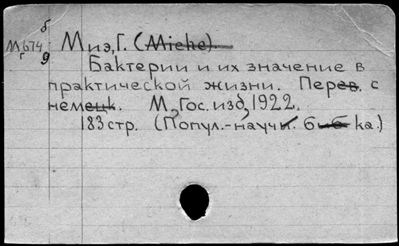 б
М674 Миэ, Г. (Miehe).
г 9
Бактерии и их значение в
практической жизни. Перев. с
немецк. М., Гос. изд., 1922.
183 стр. (Попул.-научн. б-ка.)